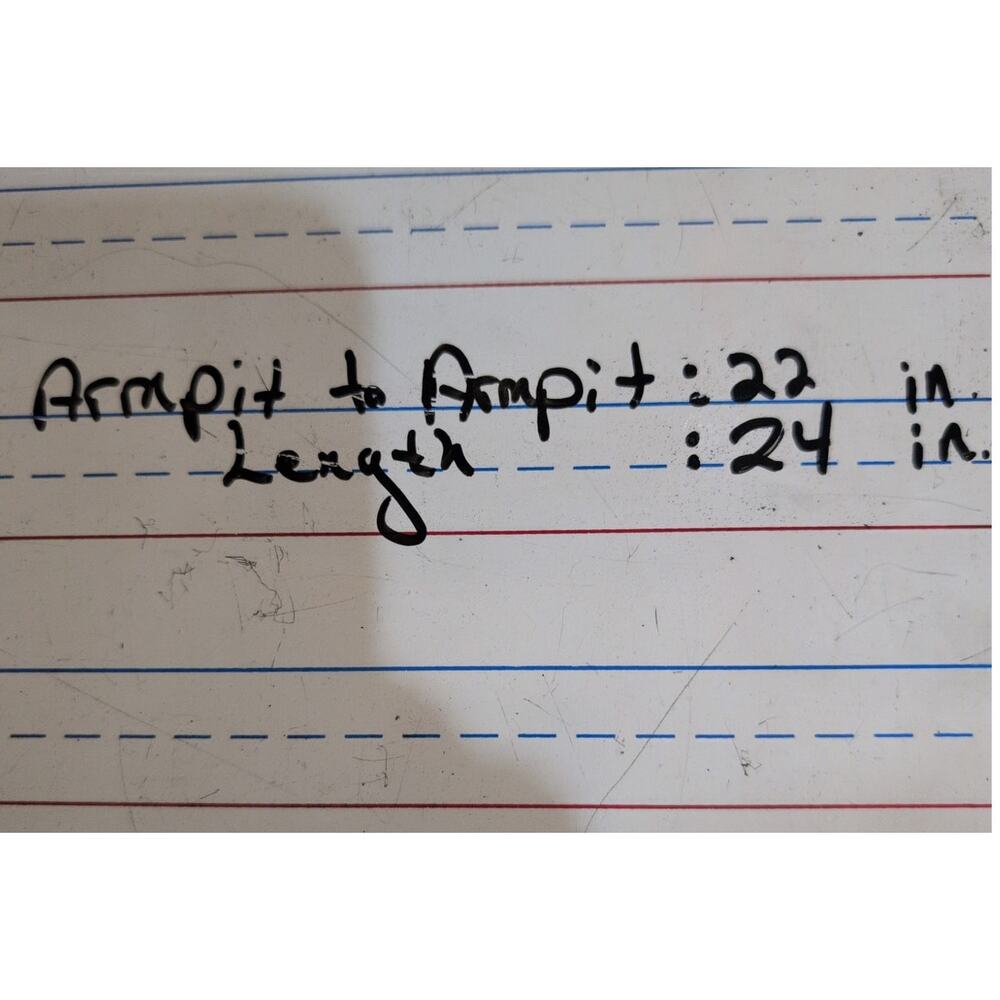 Armpit to Armpit : 22 in.
Length : 24 in.